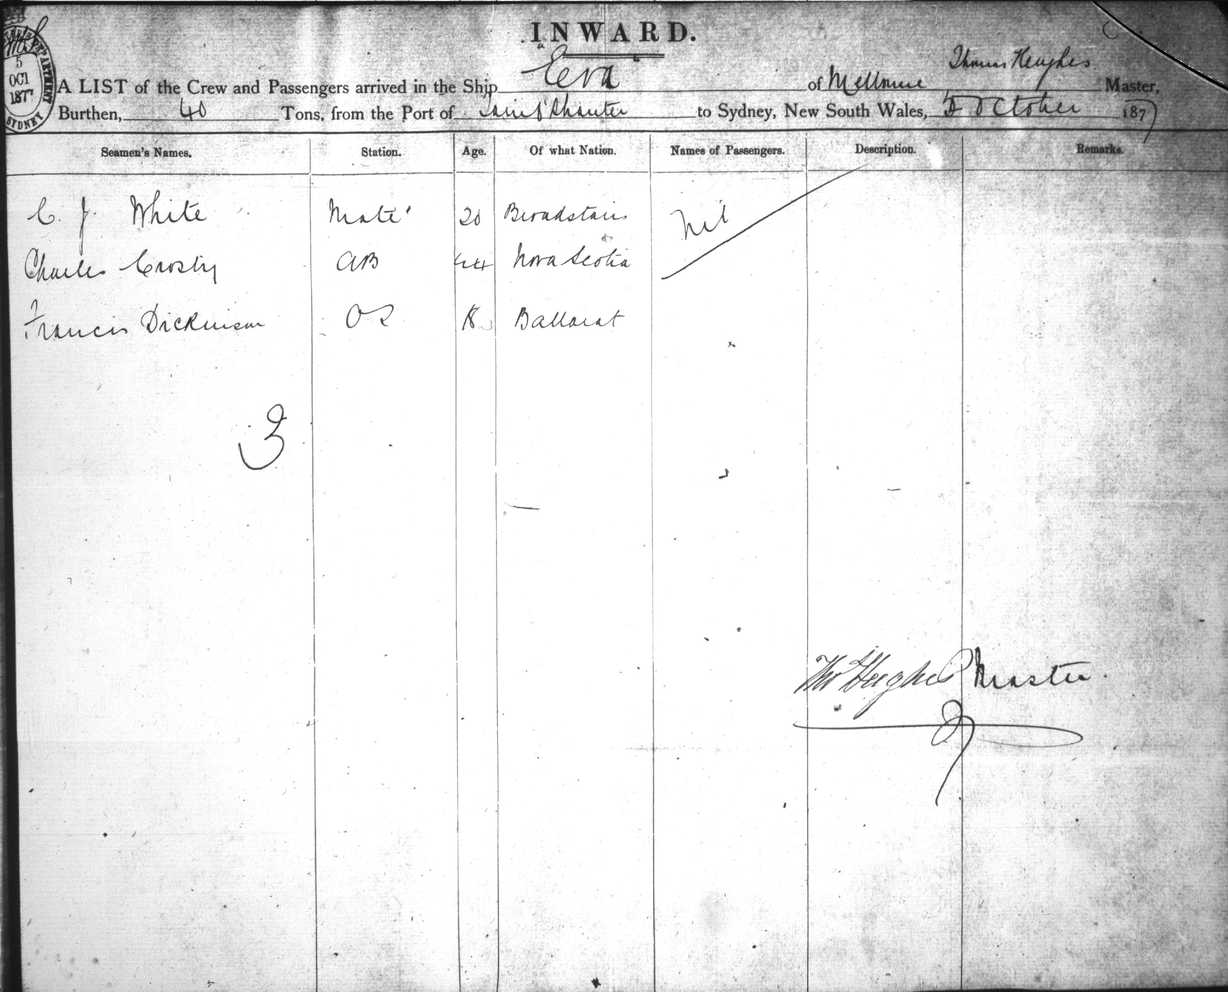 INWARD.
A LIST of the Crew and Passengers arrived in the Ship "Eeva" of Melbourne, Thomas Hughes Master,
Burthen, 40 Tons, from the Port of to Sydney, New South Wales, October 1877
5
OCT
1877
SYDNEY
Seamen's Names. Station. Age. Of what Nation. Names of Passengers. Description. Remarks.
C. J. White Mate 20 Broadstairs Nil
Charles Crosby AB 44 Nova Scotia
Francis Dickinson OS 18 Ballarat
3
Thos Hughes Master.